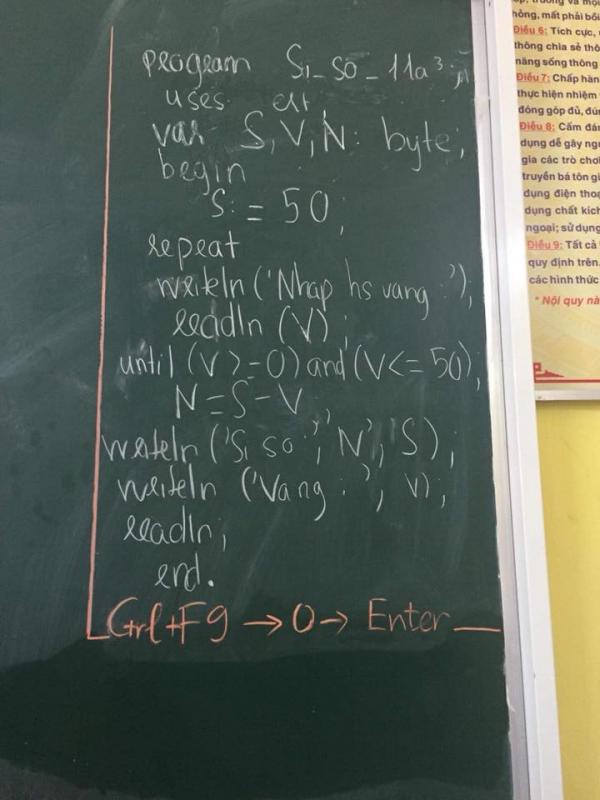 program Si_so_11a3;
uses crt;
var S,V,N: byte;
begin
S:=50;
repeat
writeln('Nhap hs vang:');
readln(V);
until (V>=0) and (V<=50);
N=S-V;
writeln('Si so:','N','S);
writeln('Vang:', V);
readln;
end.
Ctrl+F9 → 0 → Enter
hỏng, mất phải bồi
Điều 6: Tích cực,
thông chia sẻ thô
năng sống thông
Điều 7: Chấp hàn
thực hiện nhiệm
đóng góp đủ, đún
Điều 8: Cấm đán
dụng dễ gây ng
gia các trò chơi
truyền bá tôn gi
dụng điện thoạ
dụng chất kích
ngoại; sử dụng
Điều 9: Tất cả
quy định trên.
các hình thức
* Nội quy nà